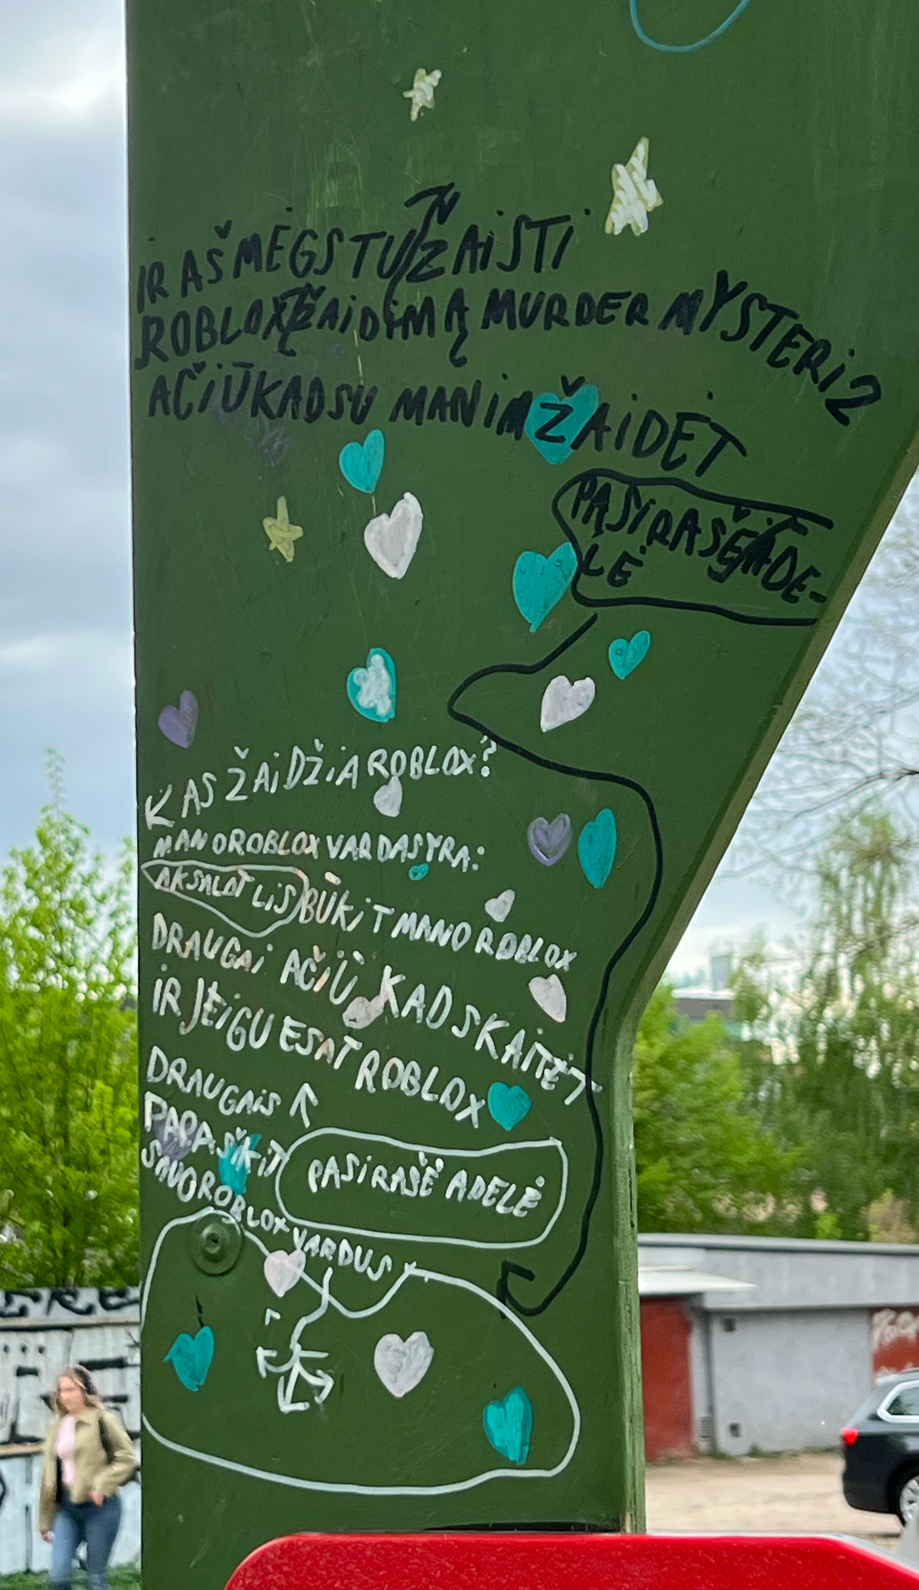 IR AŠ MĖGSTU ŽAISTI
ROBLOX ŽAIDIMĄ MURDER MYSTERI 2
AČIŪ KAD SU MANIM ŽAIDĖT
PASYRAŠĖ ADE-
LĖ
KAS ŽAIDŽIA ROBLOX?
MANO ROBLOX VARDAS YRA:
AKSALOTLIS BŪKIT MANO ROBLOX
DRAUGAI AČIŪ KAD SKAITĖT
IR JEIGU ESAT ROBLOX
DRAUGAIS
PARAŠIKIT
SAVO ROBLOX VARDUS
PASIRAŠĖ ADELĖ